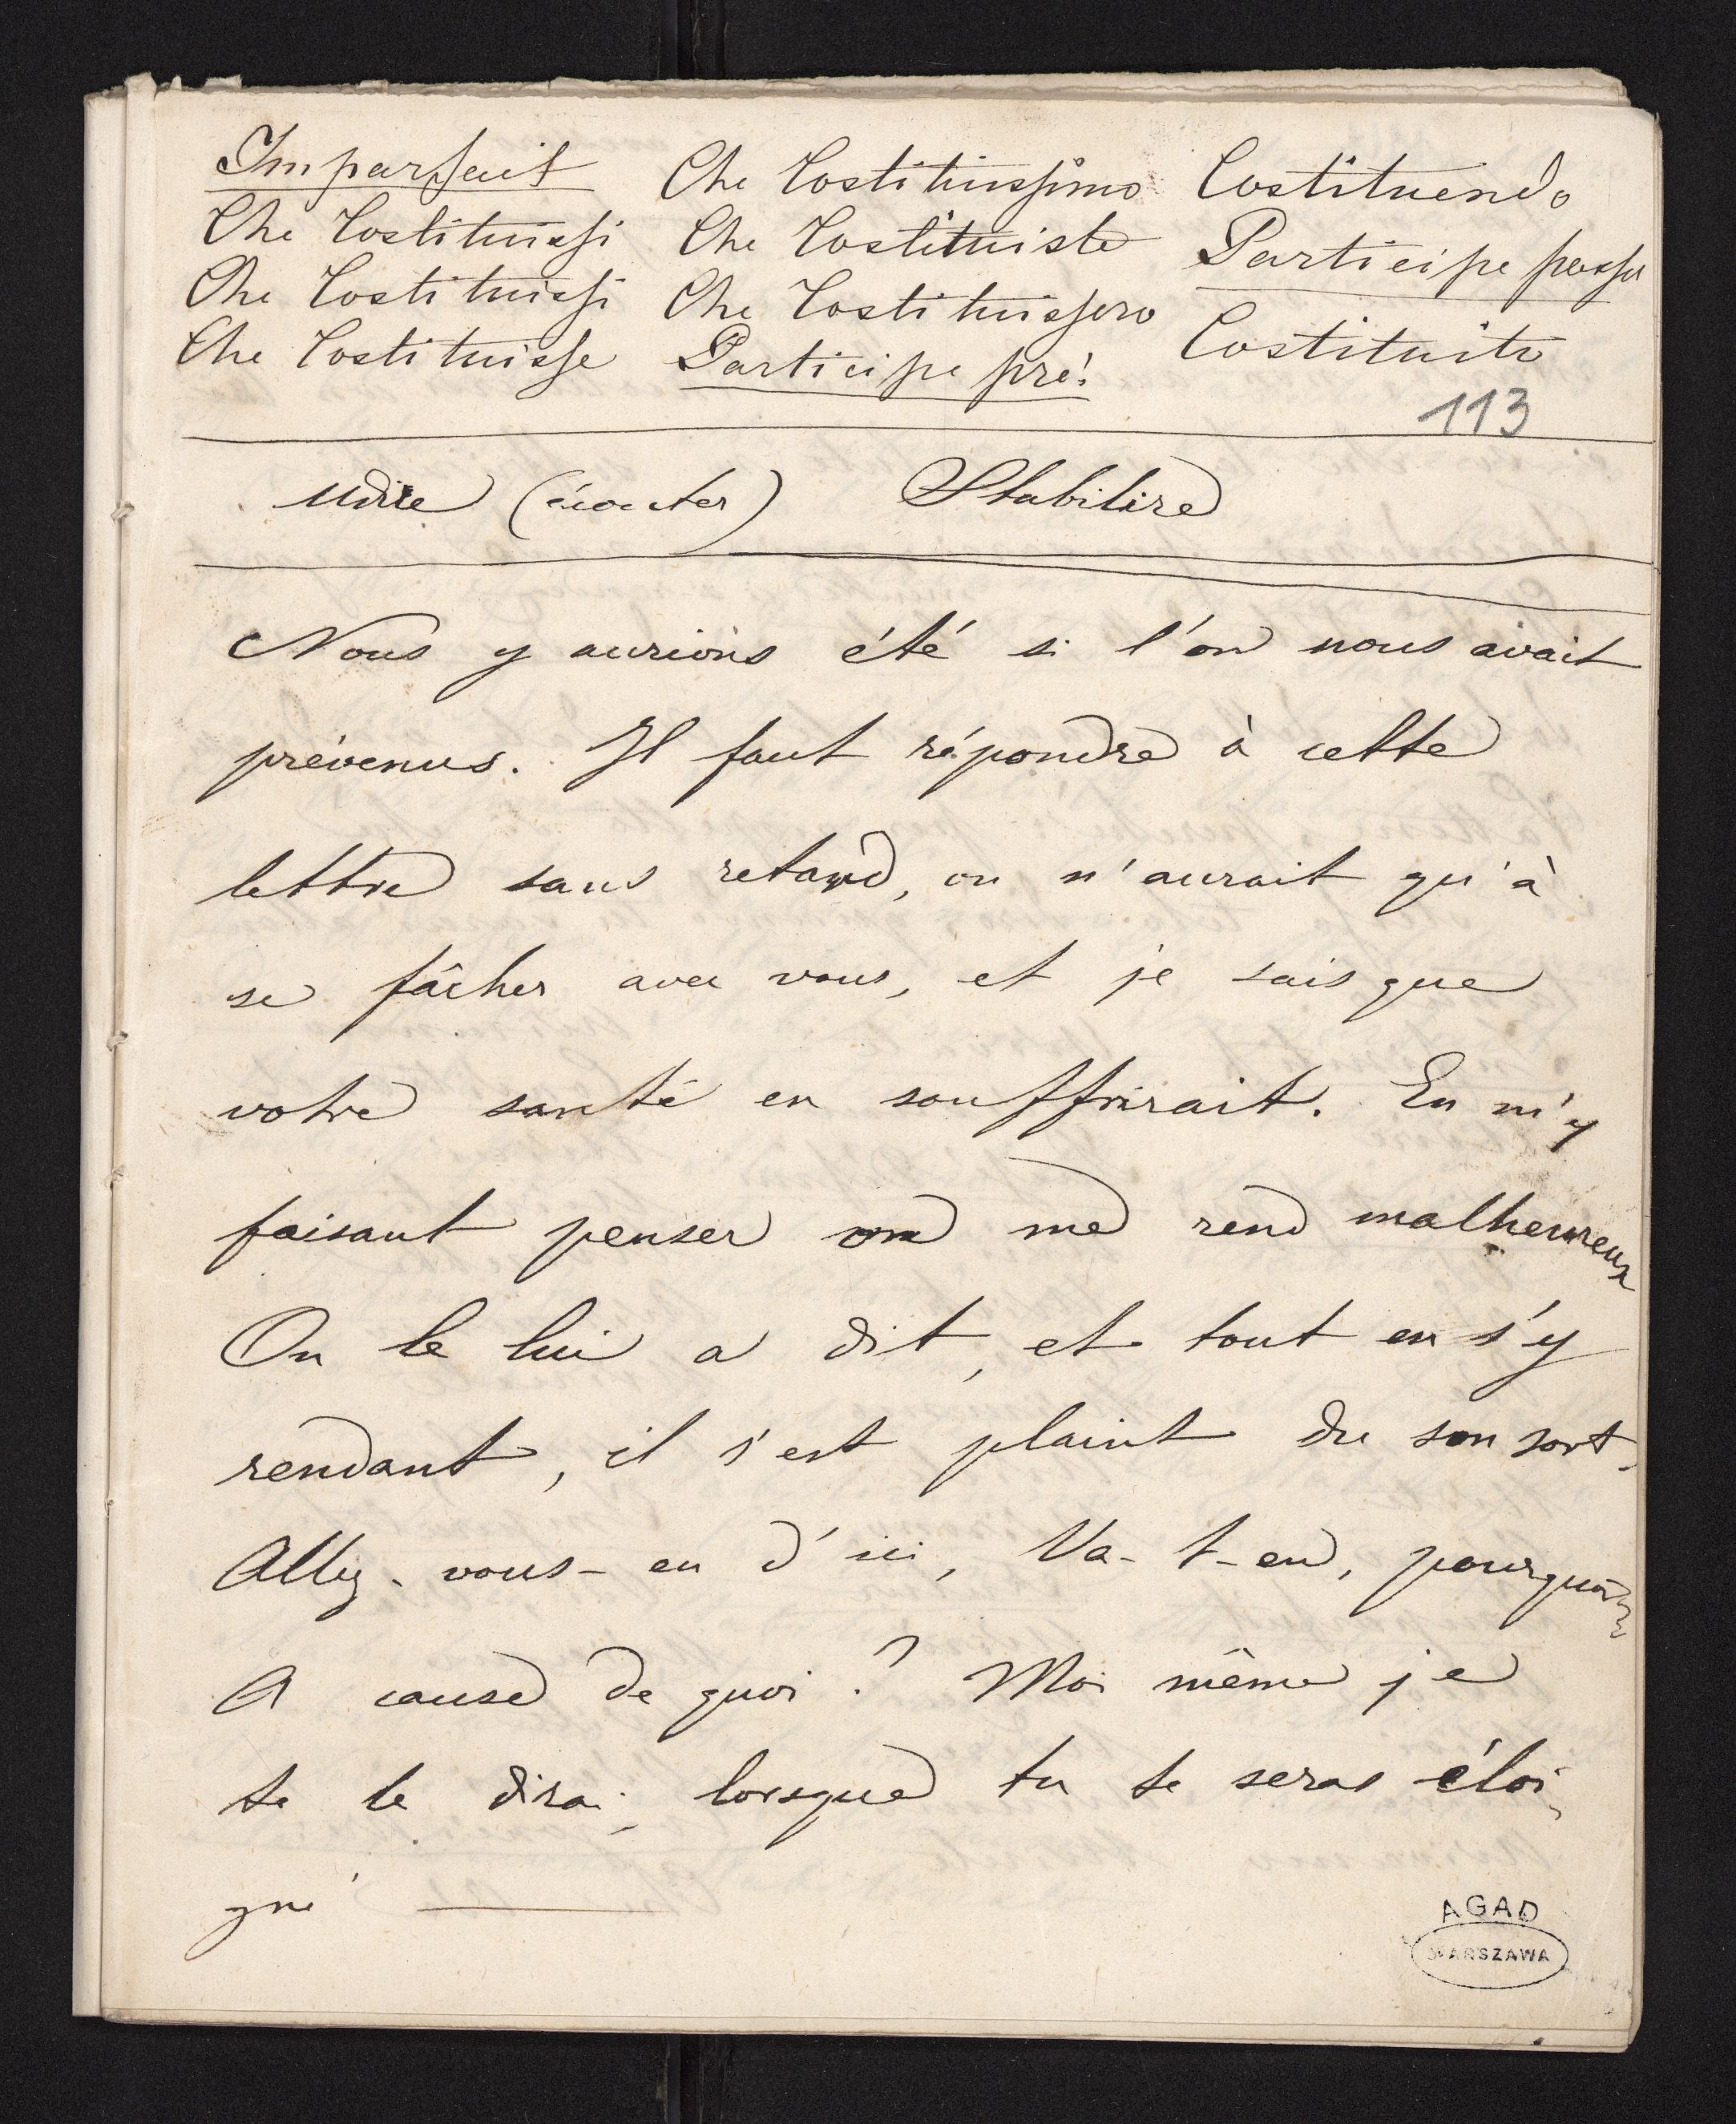 Imparfait
Che Costituissi
Che Costituissi
Che Costituisse
Che Costituissimo
Che Costituiste
Che Costituissero
Participe pré.
Costituendo
Participe passé
Costituito
113
Udire (écouter) Stabilire
Nous y aurions été si l'on nous avait
prévenus. Il faut répondre à cette
lettre sans retard, on n'aurait qu'à
se fâcher avec vous, et je sais que
votre santé en souffrirait. En m'y
faisant penser on me rend malheureux
On le lui a dit, et tout en s'y
rendant, il s'est plaint de son sort.
Allez-vous-en d'ici, Va-t-en, pourquoi?
A cause de quoi? Moi même je
te le dirai, lorsque tu te seras éloi-
gné
AGAD
WARSZAWA